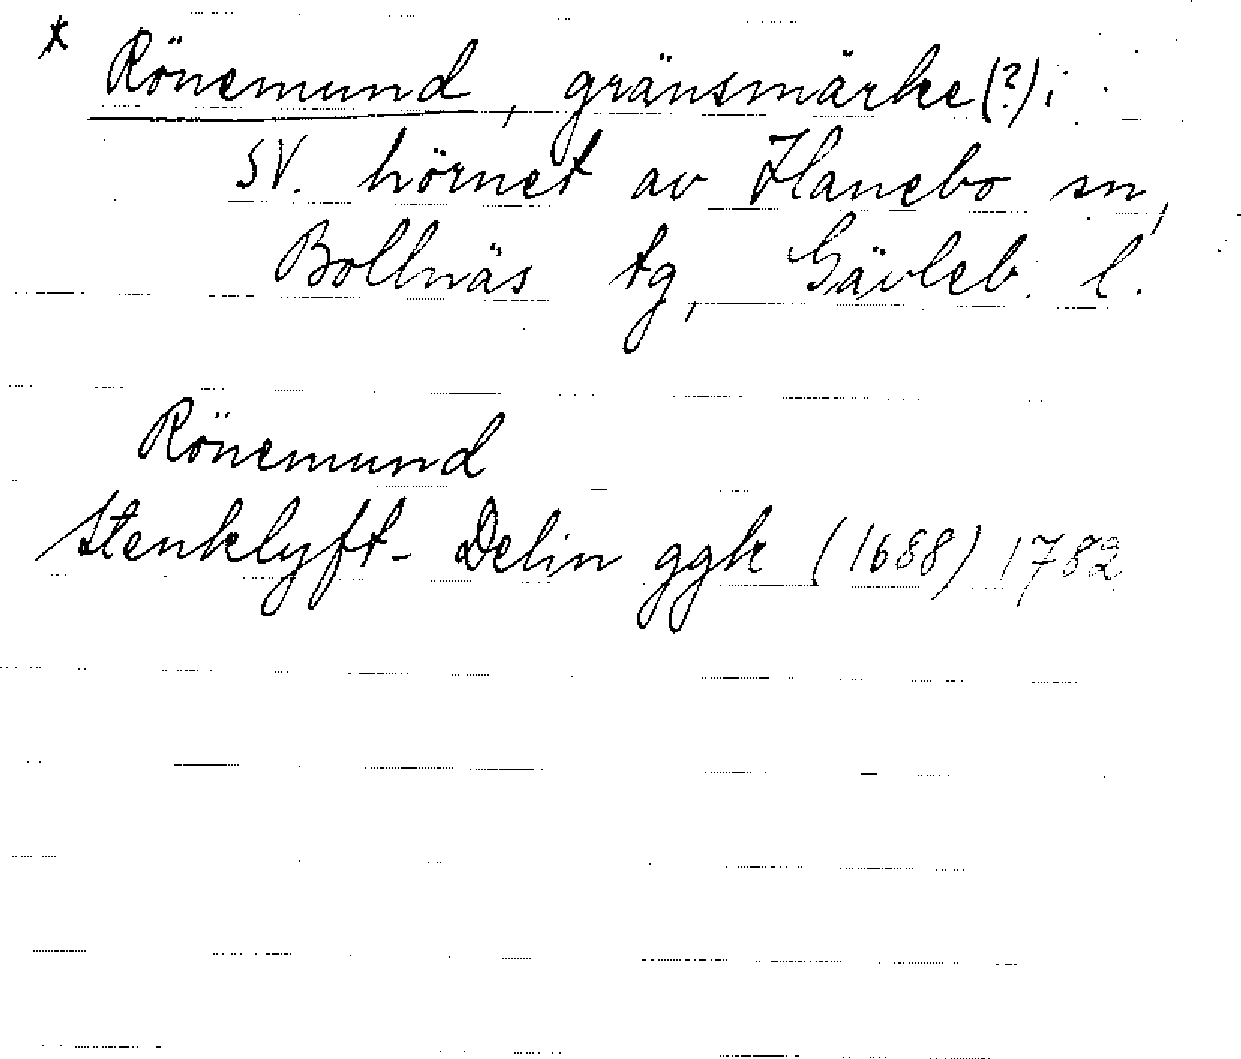 * Rönemund, gränsmärke(?) i
SV. hörnet av Hanebo sn,
Bollnäs tg, Gävleb. l.
Rönemund
Stenklyft - Delin ggk (1688) 1782